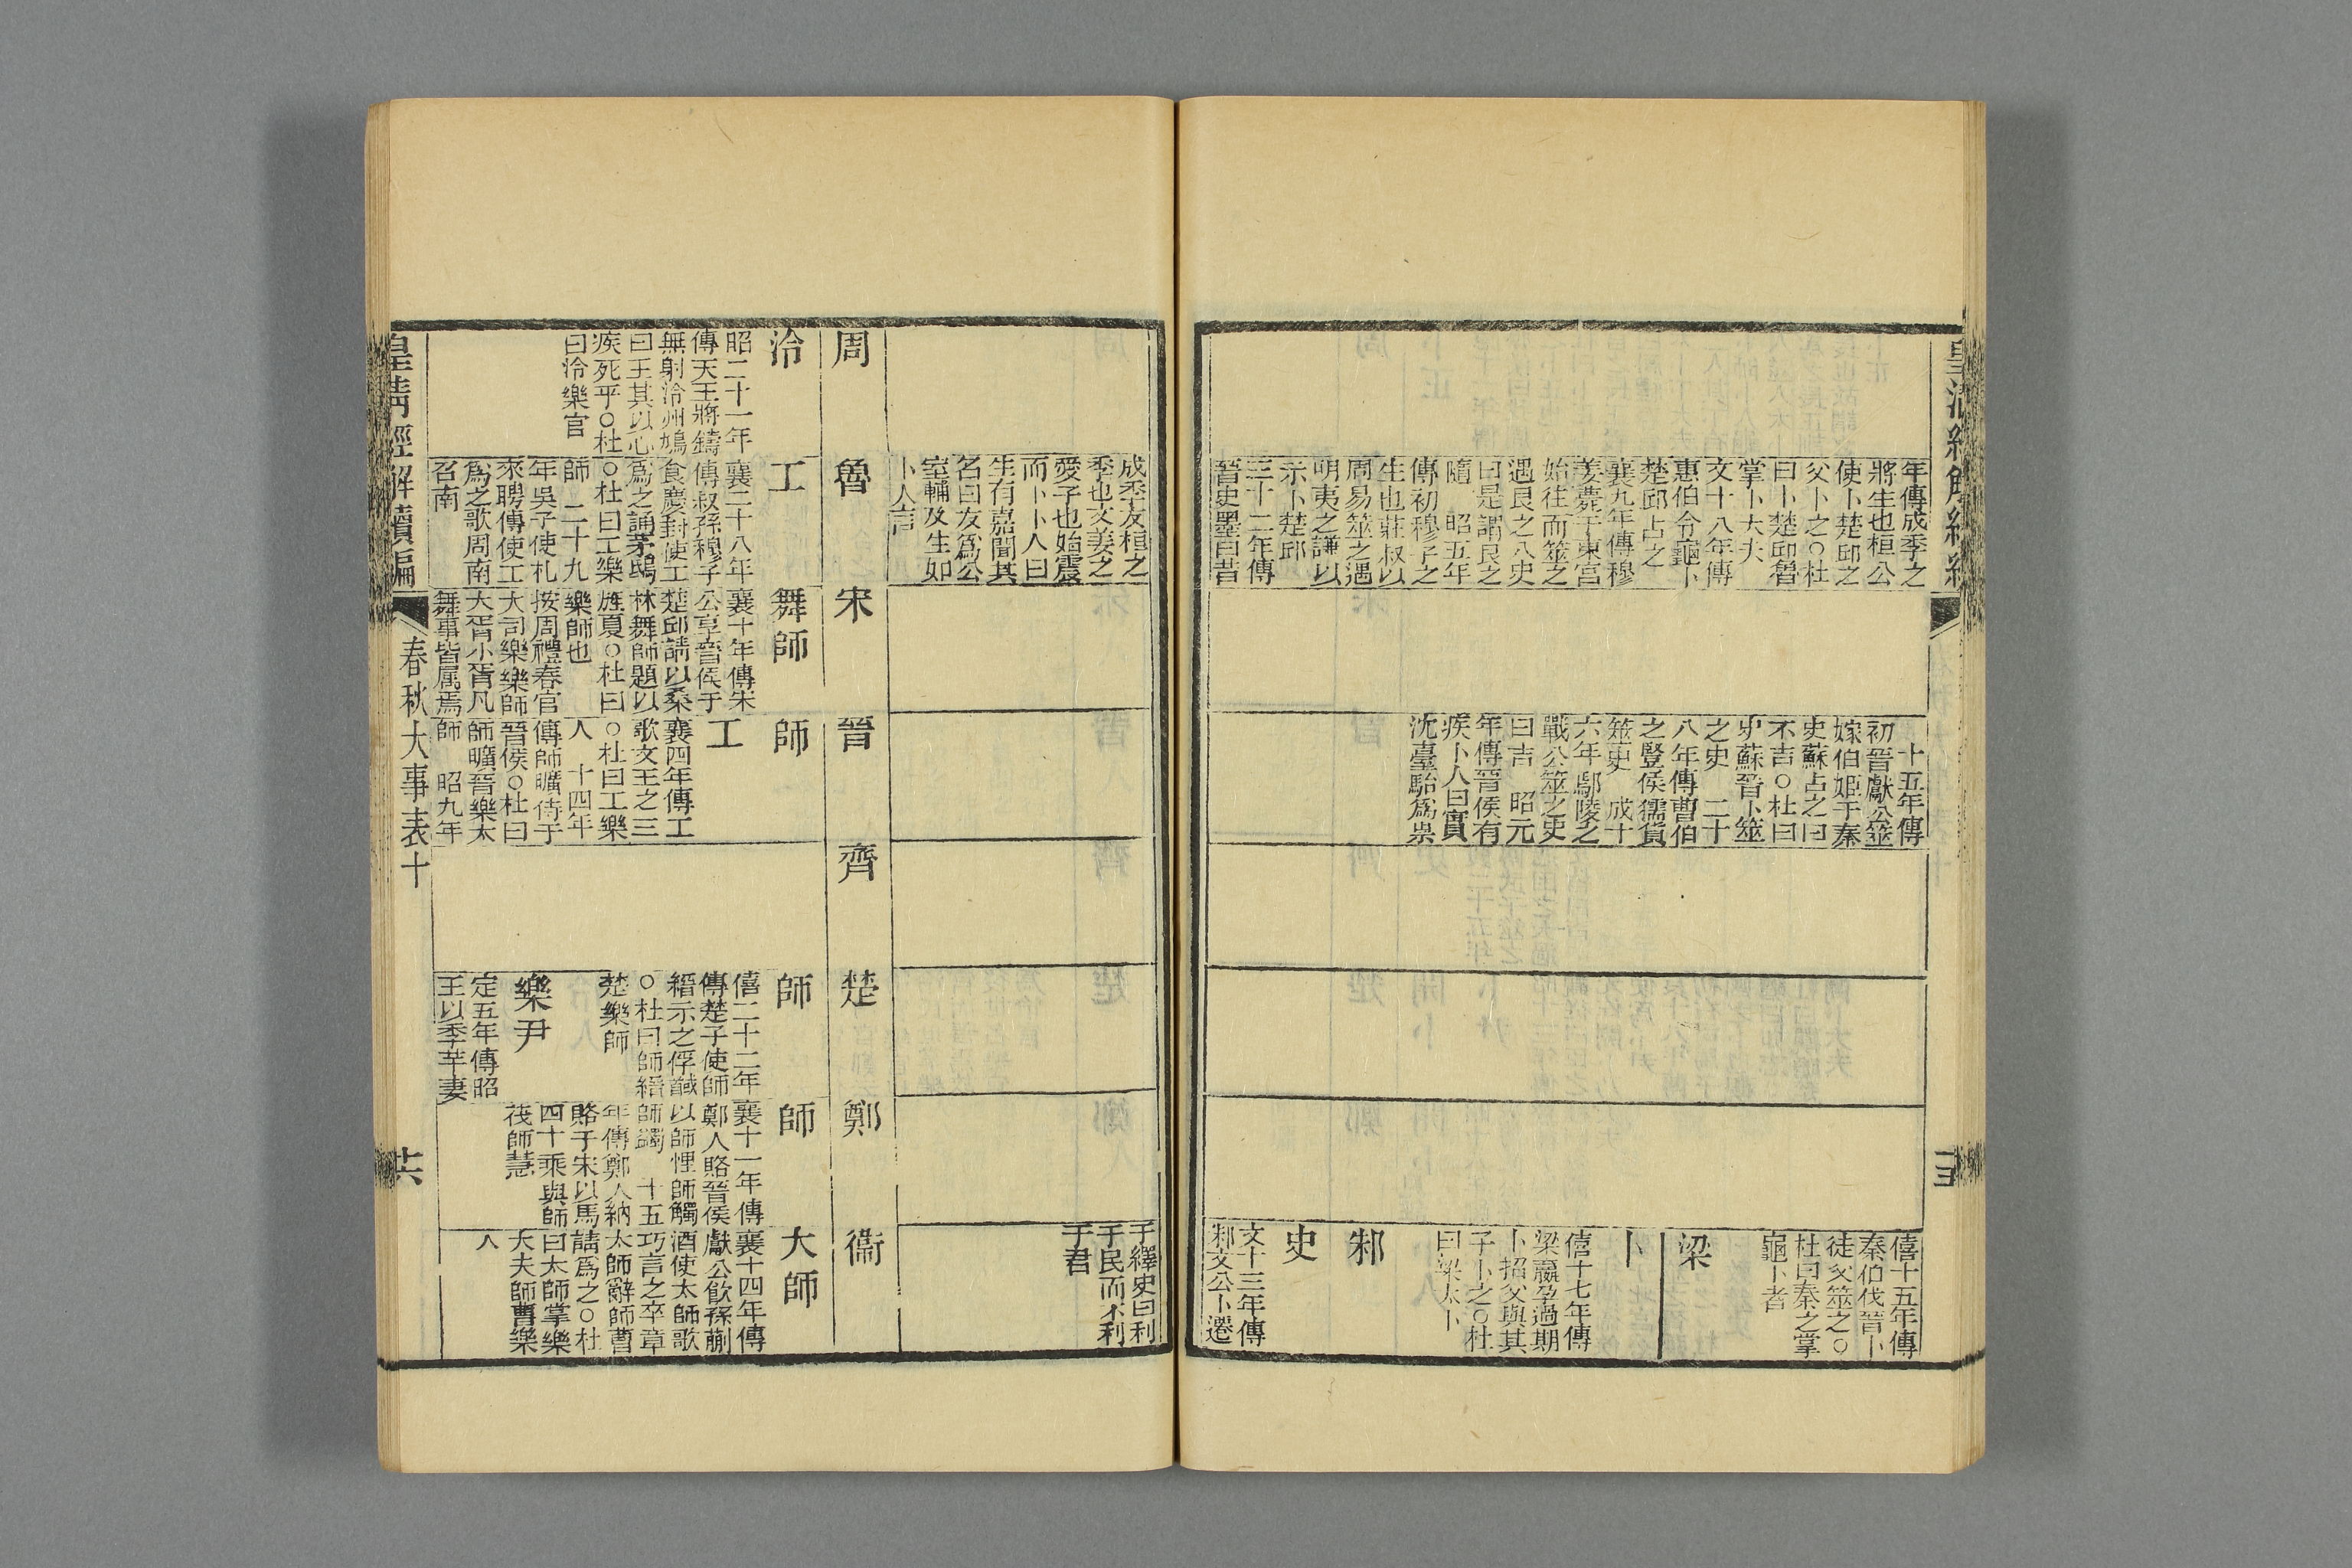 年傳成季之
將生也桓公
使卜楚邱之
父卜之○杜
曰卜楚邱魯
掌卜大夫
文十八年傳
惠伯令龜卜
楚邱占之
襄九年傳穆
姜薨于東宮
始往而筮之
遇艮之八史
曰是謂艮之
隨　昭五年
傳初穆子之
生也莊叔以
周易筮之遇
明夷之謙以
示卜楚邱
三十二年傳
晉史墨曰昔
十五年傳
初晉獻公筮
嫁伯姬于秦
史蘇占之曰
不吉○杜曰
史蘇晉卜筮
之史　二十
八年傳曹伯
之豎侯獳貨
筮史　成十
六年鄢陵之
戰公筮之史
曰吉　昭元
年傳晉侯有
疾卜人曰實
沈臺駘爲祟
僖十五年傳
秦伯伐晉卜
徒父筮之○
杜曰秦之掌
龜卜者
梁
卜
僖十七年傳
梁嬴孕過期
卜招父與其
子卜之○杜
曰梁太卜
邾
史
文十三年傳
邾文公卜遷
成季友桓之
季也文姜之
愛子也始震
而卜卜人曰
生有嘉聞其
名曰友爲公
室輔及生如
卜人言
于繹史曰利
于民而不利
于君
周
泠
昭二十一年
傳天王將鑄
無射泠州鳩
曰王其以心
疾死乎○杜
曰泠樂官
魯
工
襄二十八年
傳叔孫穆子
食慶封使工
爲之誦茅鴟
○杜曰工樂
師　二十九
年吳子使札
來聘傳使工
爲之歌周南
召南
宋
舞師
襄十年傳宋
公享晉侯于
楚邱請以桑
林舞師題以
旌夏○杜曰
樂師也
按周禮春官
大司樂樂師
大胥小胥凡
舞事皆屬焉
晉
師
工
襄四年傳工
歌文王之三
○杜曰工樂
人　十四年
傳師曠侍于
晉侯○杜曰
師曠晉樂太
師　昭九年
齊
楚
師
僖二十二年
傳楚子使師
縉示之俘馘
○杜曰師縉
楚樂師
樂尹
定五年傳昭
王以季芉妻
鄭
師
襄十一年傳
鄭人賂晉侯
以師悝師觸
師蠲　十五
年傳鄭人納
賂于宋以馬
四十乘與師
茷師慧
衞
大師
襄十四年傳
獻公飲孫蒯
酒使太師歌
巧言之卒章
太師辭師曹
請爲之○杜
曰太師掌樂
大夫師曹樂
人
皇清經解續編
春秋大事表十